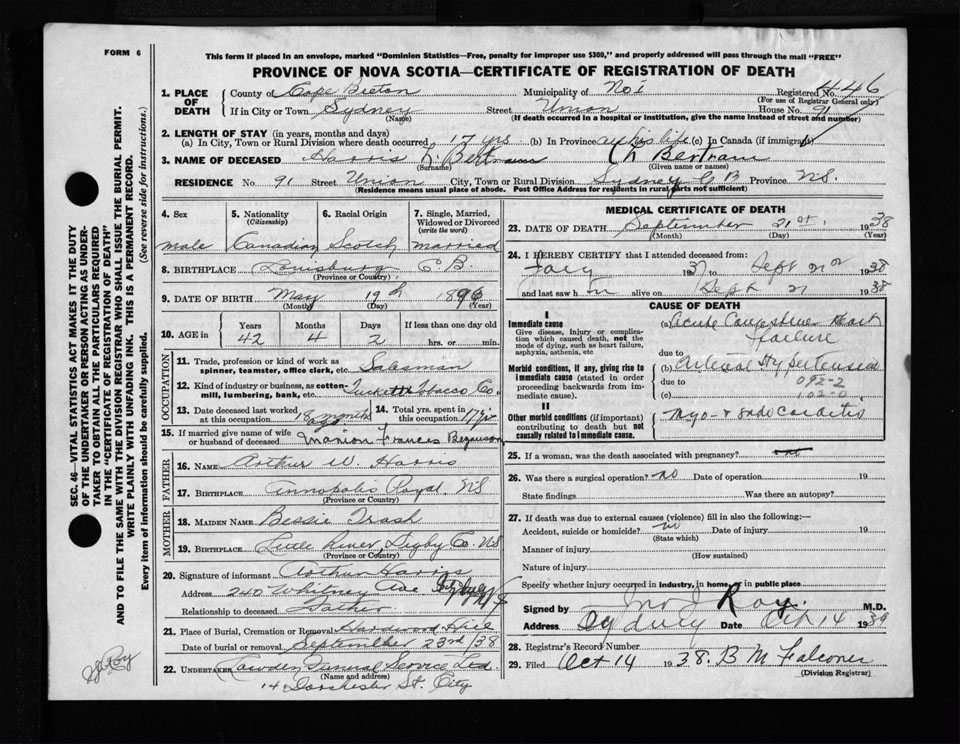 FORM 6
This form if placed in an envelope, marked "Dominion Statistics—Free, penalty for improper use $300," and properly addressed will pass through the mail "FREE"
PROVINCE OF NOVA SCOTIA—CERTIFICATE OF REGISTRATION OF DEATH
1. PLACE OF DEATH County of Cape Breton Municipality of No 1 Registered No. 446
(For use of Registrar General only)
If in City or Town Sydney Street Union House No. 91
(Name) (If death occurred in a hospital or institution, give the name instead of street and number)
2. LENGTH OF STAY (in years, months and days)
(a) In City, Town or Rural Division where death occurred 17 yrs (b) In Province all his life (c) In Canada (if immigrant)
3. NAME OF DECEASED Harris Bertram
(Surname) (Given name or names)
RESIDENCE No 91 Street Union City, Town or Rural Division Sydney C B Province N.S.
(Residence means usual place of abode. Post Office Address for residents in rural parts not sufficient)
4. Sex male
5. Nationality (Citizenship) Canadian
6. Racial Origin Scotch
7. Single, Married, Widowed or Divorced (write the word) married
8. BIRTHPLACE Louisburg C B.
(Province or Country)
9. DATE OF BIRTH May 19th 1896
(Month) (Day) (Year)
10. AGE in Years Months Days If less than one day old
42 4 2 hrs. or min.
OCCUPATION
11. Trade, profession or kind of work as spinner, teamster, office clerk, etc. Salesman
12. Kind of industry or business, as cotton-mill, lumbering, bank, etc. Tuckett Tobacco Co.
13. Date deceased last worked at this occupation 18 months ago 14. Total yrs. spent in this occupation 17 yr
15. If married give name of wife or husband of deceased Marion Frances
FATHER
16. NAME Arthur W. Harris
17. BIRTHPLACE Annapolis Royal, NS
(Province or Country)
MOTHER
18. MAIDEN NAME Bessie Trash
19. BIRTHPLACE Little River, Digby Co. NS
(Province or Country)
20. Signature of informant Arthur Harris
Address 240 Whitney Ave Sydney NS
Relationship to deceased Father
21. Place of Burial, Cremation or Removal Hardwood Hill
Date of burial or removal September 23rd /38
22. UNDERTAKER Funeral Service Ltd.
(Name and address)
14 Dorchester St. City
MEDICAL CERTIFICATE OF DEATH
23. DATE OF DEATH September 21st. 1938
(Month) (Day) (Year)
24. I HEREBY CERTIFY that I attended deceased from:
1937 to Sept 21st 1938
and last saw him alive on Sept 21 1938
CAUSE OF DEATH
I
Immediate cause
Give disease, injury or complication which caused death, not the mode of dying, such as heart failure, asphyxia, asthenia, etc
(a) Acute Congestive Heart failure
due to
Morbid conditions, if any, giving rise to immediate cause (stated in order proceeding backwards from immediate cause).
(b) Arterial Hypertension
due to 092-2
(c) 102-0
II
Other morbid conditions (if important) contributing to death but not causally related to immediate cause.
Myo- & Endo Carditis
25. If a woman, was the death associated with pregnancy?
26. Was there a surgical operation? no Date of operation 19
State findings Was there an autopsy?
27. If death was due to external causes (violence) fill in also the following:—
Accident, suicide or homicide? no Date of injury 19
(State which)
Manner of injury
(How sustained)
Nature of injury
Specify whether injury occurred in industry, in home, or in public place
Signed by Jno J Roy. M.D.
Address Sydney Date Oct 14 1938
28. Registrar's Record Number
29. Filed Oct 14 1938. B M Falconer
(Division Registrar)
SEC. 46—VITAL STATISTICS ACT MAKES IT THE DUTY OF THE UNDERTAKER OR PERSON ACTING AS UNDERTAKER TO OBTAIN ALL THE PARTICULARS REQUIRED IN THE "CERTIFICATE OF REGISTRATION OF DEATH"
AND TO FILE THE SAME WITH THE DIVISION REGISTRAR WHO SHALL ISSUE THE BURIAL PERMIT.
WRITE PLAINLY WITH UNFADING INK. THIS IS A PERMANENT RECORD.
Every item of information should be carefully supplied. (See reverse side for instructions.)